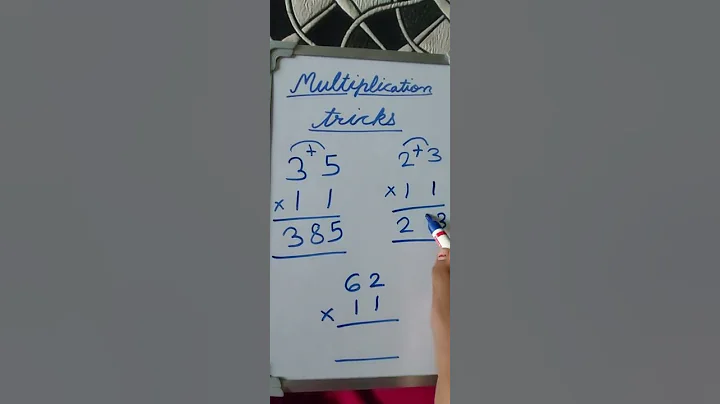 Multiplication
tricks
3 + 5
× 1 1
385
2 + 3
× 1 1
2 3
62
× 11